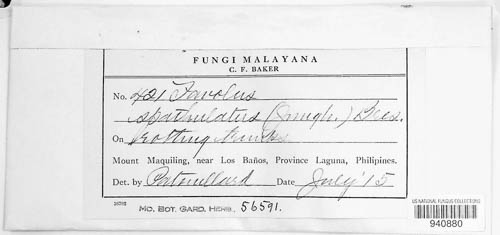 FUNGI MALAYANA
C. F. BAKER
No. 421 Favolus
spathulatus (Jungh.) Bres.
On rotting trunks
Mount Maquiling, near Los Baños, Province Laguna, Philipines.
Det. by Patouillard Date July '15
MO. BOT. GARD. HERB., 56591.
US NATIONAL FUNGUS COLLECTIONS
940880